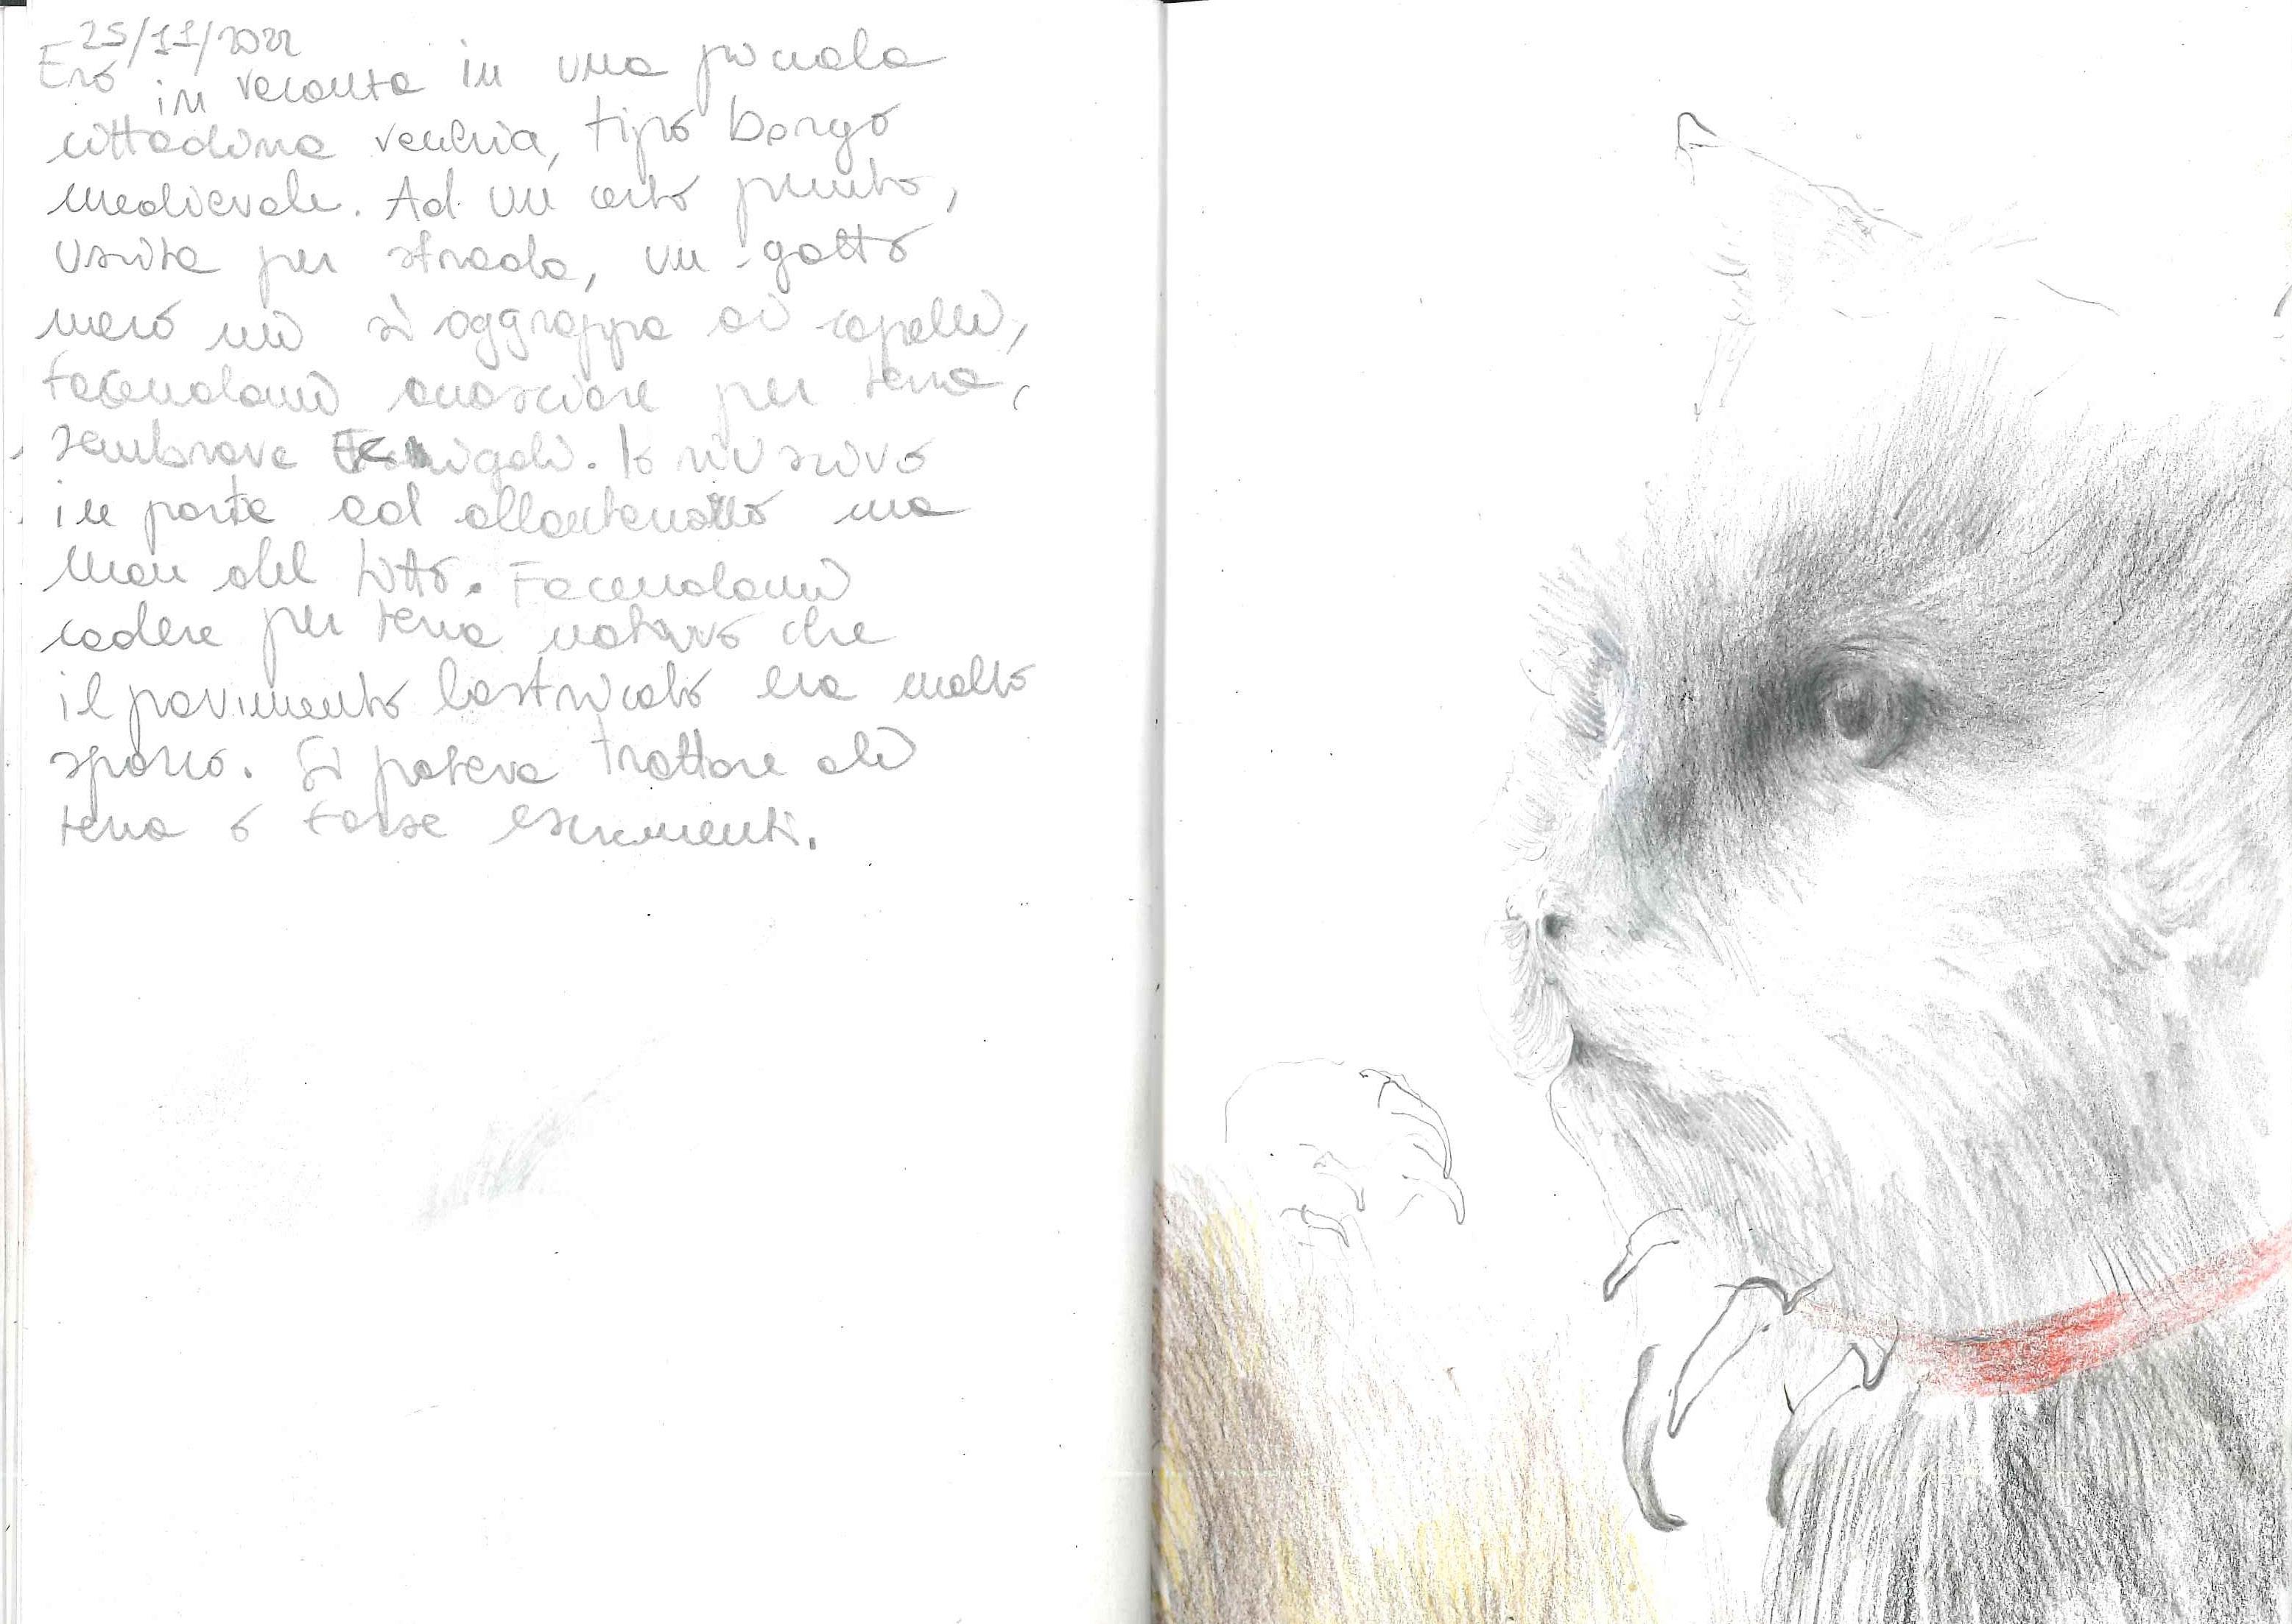 25/11/2022
Ero in vacanza in una piccola
cittadina vecchia, tipo borgo
medievale. Ad un certo punto,
uscita per strada, un gatto
nero mi si aggrappa ai capelli,
facendomi accasciare per terra,
sembrava
Io riuscivo
in parte ad allontanarlo ma
non del tutto. Facendomi
cadere per terra notavo che
il pavimento lastricato era molto
sporco. Si poteva trattare di
terra o forse escrementi.